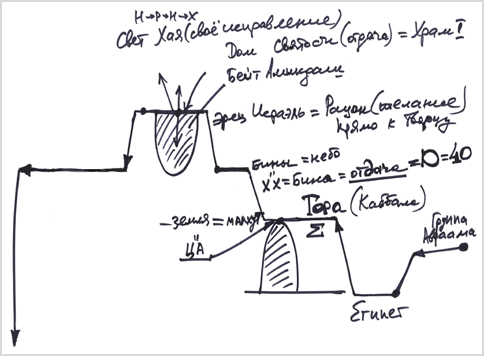 Н→Р→Н→Х
Свет Хая (своё исправление)
Дом Святости (отдача) = Храм I
Бейт Амикдаш
Эрец Исраэль = Рацон (желание)
прямо к Творцу
Бины = небо
х"х = Бина = отдача = = 40
Тора (Каббала)
Σ
- земля = малхут
Ц"А
Группа
Авраама
Египет